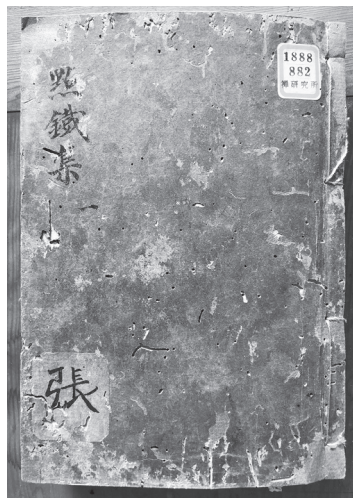 1888
882
禅研究所
點鐵集 一
張